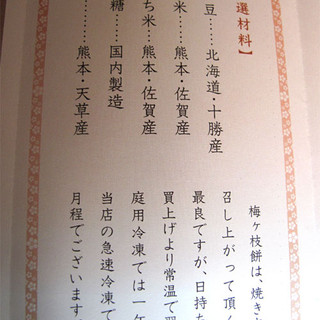 選材料】
豆……北海道・十勝産
米……熊本・佐賀産
ち米…熊本・佐賀産
糖……国内製造
………熊本・天草産
梅ヶ枝餅は、焼き
召し上がって頂く
最良ですが、日持ち
買上げより常温で
庭用冷凍では一年
当店の急速冷凍で
月程でございます